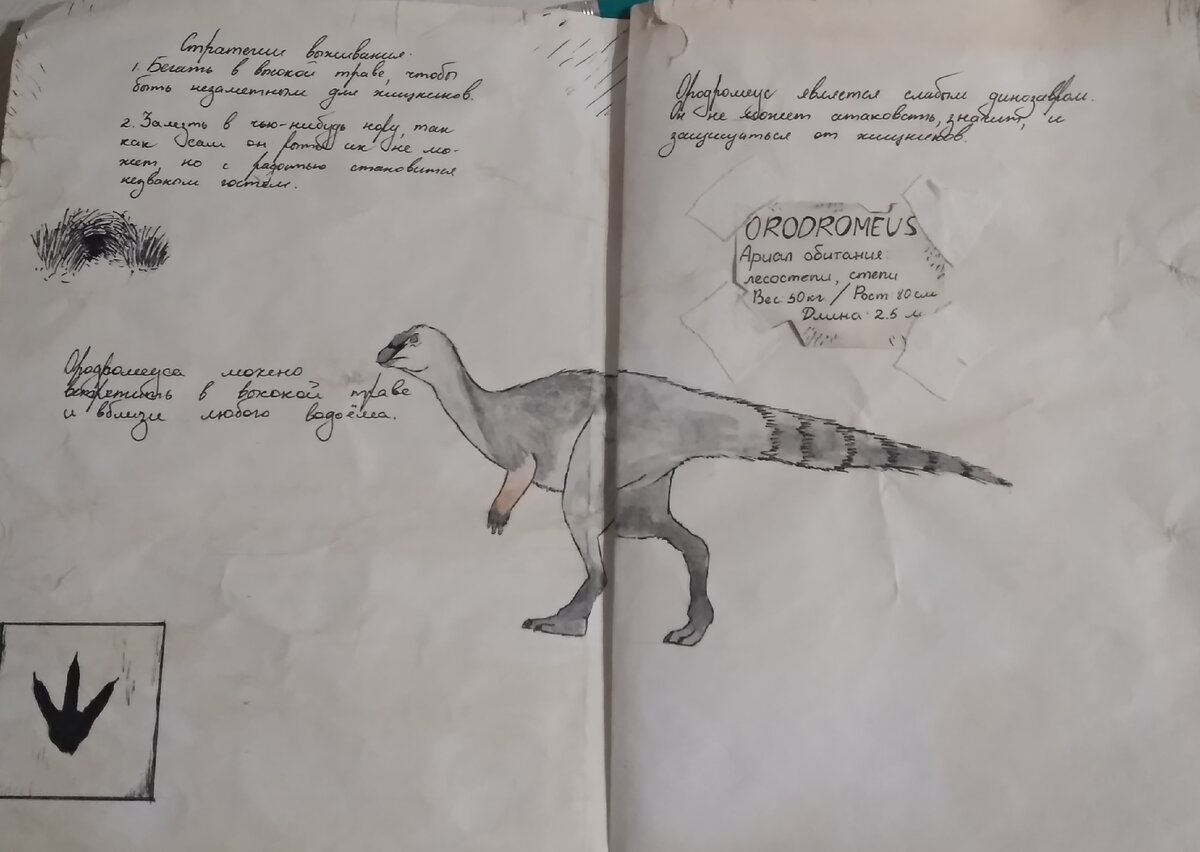 Стратегии выживания.
1. Бегать в высокой траве, чтобы
быть незаметным для хищников.
2. Залезть в чью-нибудь нору, так
как сам он рыть их не мо-
жет, но с радостью становится
незваным гостем.
Ородромеуса можно
встретить в высокой траве
и вблизи любого водоёма.
Ородромеус является слабым динозавром.
Он не может атаковать, значит, и
защищаться от хищников.
ORODROMEUS
Ариал обитания:
лесостепи, степи
Вес: 50 кг / Рост: 80 см
Длина: 2.5 м